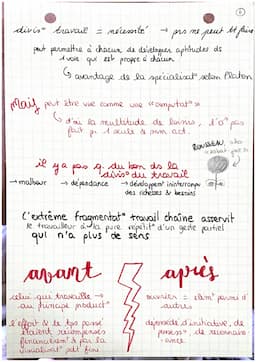 divis° travail = nécessité → prs ne peut tt faire
peut permettre à chacun de développer aptitudes ds
1 voie qui est propre à chacun
↳ avantage de la spécialisat° selon Platon
Mais peut être vue comme une « amputat° »
↳ d'où la multitude de loisirs, l'
fait qu' 1 seule à son act.
il y a pas q. du bon ds la
divis° du travail
→ malheur → dépendance → développemt ininterrompu
des richesses & besoins
L'extrême fragmentat° travail chaîne asservit
le travailleur à la pure répétit° d'un geste partiel
qui n'a plus de sens
avant après
celui qui travaille →
au principe product°
l'effort & le tps passé
étaient récompensés
financièremt & par la
ouvrier = élémt parmi d'
autres
dépossédé d'initiative, de
process°, de reconnaiss-
ance